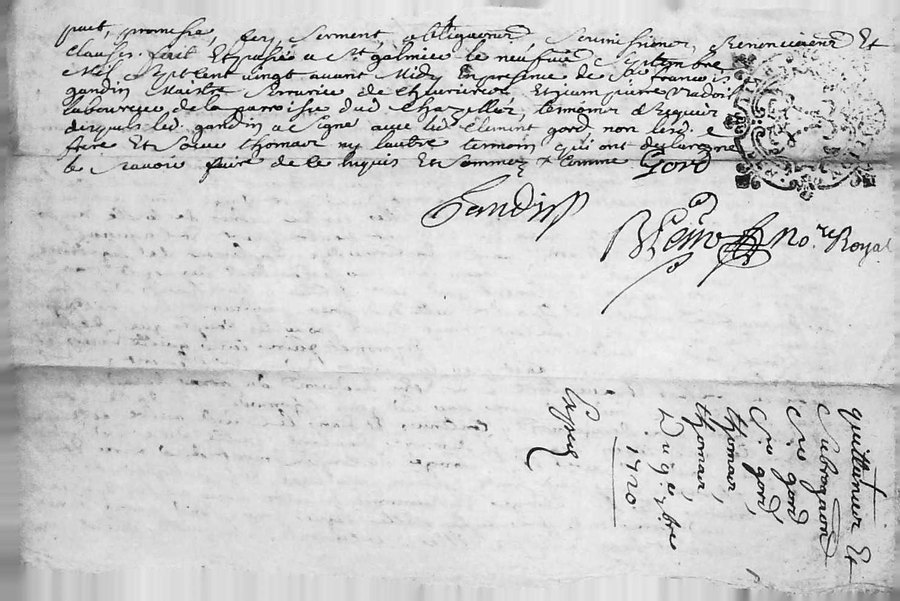 part, promesse, foy, serment, obligaons, soumissions, Renonciaons Et
clauses. fait Et passé a St. galmier le neufvie Septembre
Mil Sept cent vingt avant Midy En presence de Sr francois
gandin Maistre Serrurier de Chevrieres Et jean pierre
laboureur de la parroisse dud Chazelles, temoins Requis
desquels led. gandin a Signé avec led. Clement gord, non led.
frere Et Soeur thomas ny lautre temoin qui ont declare ne
le scavoir faire de ce Enquis Et Sommez x Clemme Gord
Gandin
No.re Royal
quittances Et
Subrogaon
Cie gord
Cie gord,
thomas,
thomas,
Du 9e 7bre
1720